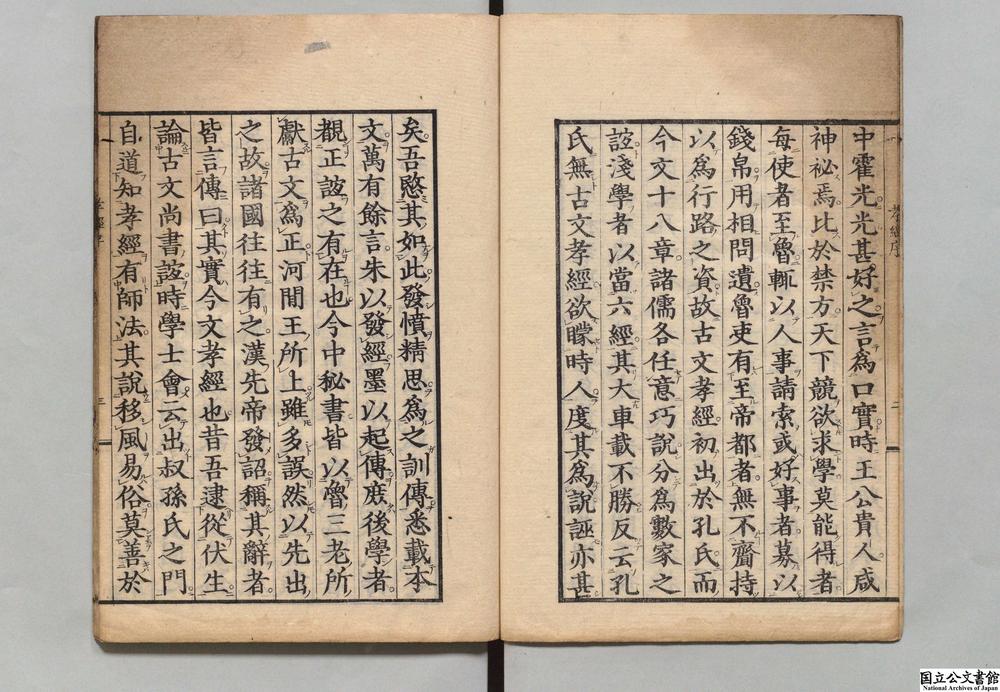 中霍光光甚好之言爲口實時王公貴人咸
神祕焉比於禁方天下競欲求學莫能得者
每使者至魯輒以人事請索或好事者募以
錢帛用相問遺魯吏有至帝都者無不齎持
以爲行路之資故古文孝經初出於孔氏而
今文十八章諸儒各任意巧說分爲數家之
誼淺學者以當六經其大車載不勝反云孔
氏無古文孝經欲矇時人度其爲說誣亦甚
孝經序
二
矣吾愍其如此發憤精思爲之訓傳悉載本
文萬有餘言朱以發經墨以起傳庶後學者
覩正誼之有在也今中秘書皆以魯三老所
獻古文爲正河間王所上雖多誤然以先出
之故諸國往往有之漢先帝發詔稱其辭者
皆言傳曰其實今文孝經也昔吾逮從伏生
論古文尚書誼時學士會云出叔孫氏之門
自道知孝經有師法其說移風易俗莫善於
孝經序
三
国立公文書館
National Archives of Japan